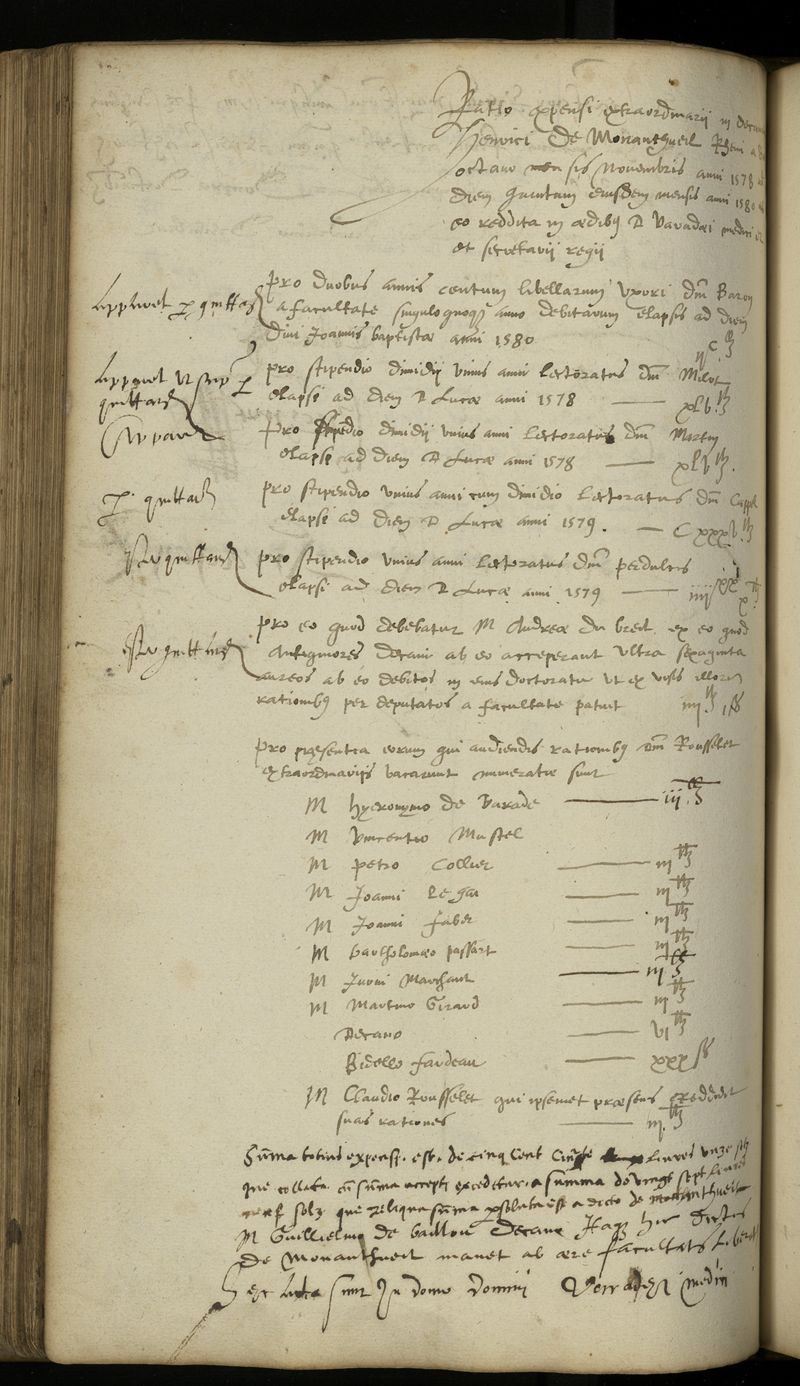 Ratio expensi extraordinarii in
Henrici de Monantheuil Rhemi
octavo mensis Novembris anni 1578
diem quintam eiusdem mensis anni 1580
eo reddita in ædibus D Varadæi medici
et secretarii regii
Pro duobus annis centum libellarum uxori dni Baron
a facultate singulo quoque anno debitarum elapsis ad diem
divi Joannis baptistæ anni 1580
ijc lb
pro stipendio dimidij unius anni lectoratus dni Milot
elapsi ad diem D Lucæ anni 1578 — xlv lb
Pro stipendio dimidij unius anni lectoratus dni Martin
elapsi ad diem D Lucæ anni 1578 — xlv lb.
per quittan
pro stipendio unius anni cum dimidio lectoratus dni Cappel
elapsi ad diem D Lucæ anni 1579. — Cxxxv lb
pro stipendio unius anni lectoratus dni perdulcis
elapsi ad diem D Lucæ anni 1579 — iiijxx x lb
pro eo quod debebatur M Andreæ du breil ex eo quod
antiquiores decani ab eo acceperant ultra sexaginta
aureos ab eo debitos in eius doctoratu ut ex visis illorum
rationibus per deputatos a facultate patuit iiij lb
pro præsentia eorum qui audiendis rationibus dni Rousselet
extraordinariis vacarunt numeratæ sunt
M hyeronymo de Varade — iij lb
M Vincentio Mustel
M petro Collier — iij lb
M Joanni Le gay — iij lb
M Joanni Faber — iij lb
M bartholomæo passart — iij lb
M Marchant — iij lb
M Martino Girard — iij lb
Decano — vi lb
Bidello fardeau — xxx ss
M Claudio Rousselet qui ipsemet præsens reddidit
suas rationes — iij lb
Summa totius expensi est de cinq cent livres unze
que collata cu summa accepti exceditur a summa de vingt sept livres
neuf solz que reliqua summa persoluta est a dicto de Monantheuil
M Guillielmo de baillou Decano Itaque hic dictus
de Monantheuil manet ab ære facultatis liber
Hec lecta sunt In domo domini Varadæi medici